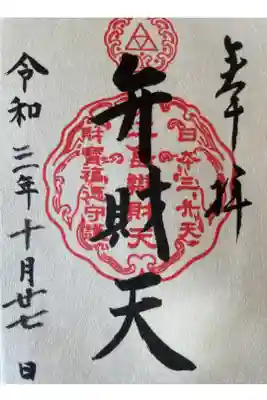 奉拝
日本三弁天
弁財天
財寶福満守護
令和三年十月廿七日